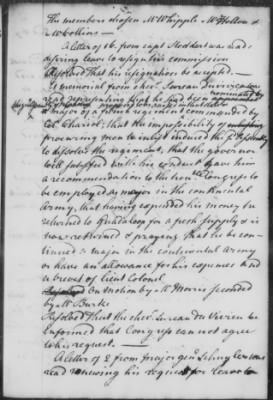 The members chosen Mr Whipple Mr Holton &
Mr Collins —
A letter of 16 from capt Stoddert was read
desiring leave to resign his commission
Resolved That his resignation be accepted. —
A memorial from chevr. was
read, representing that he had been
a major of a french regiment commanded by
Col. that the impossibility of
procuring men to inlist induced the
to dissolve the regiment, that the governor
well satisfied with his conduct gave him
a recommendation to the honble. Congress to
be employed as major in the continental
Army, that having expended his money he
returned to Guadaloupe for a fresh supply & is
now returned & praying that he be con-
tinued a major in the continental army
or have an allowance for his expences and
a brevet of lieut Colonel
On motion by Mr Morris seconded
by Mr Burke
Resolved That the chevr. be
informed that Congress can not agree
to his request. —
A letter of 2 from major genl. Schuyler was
read renewing his request for leave to